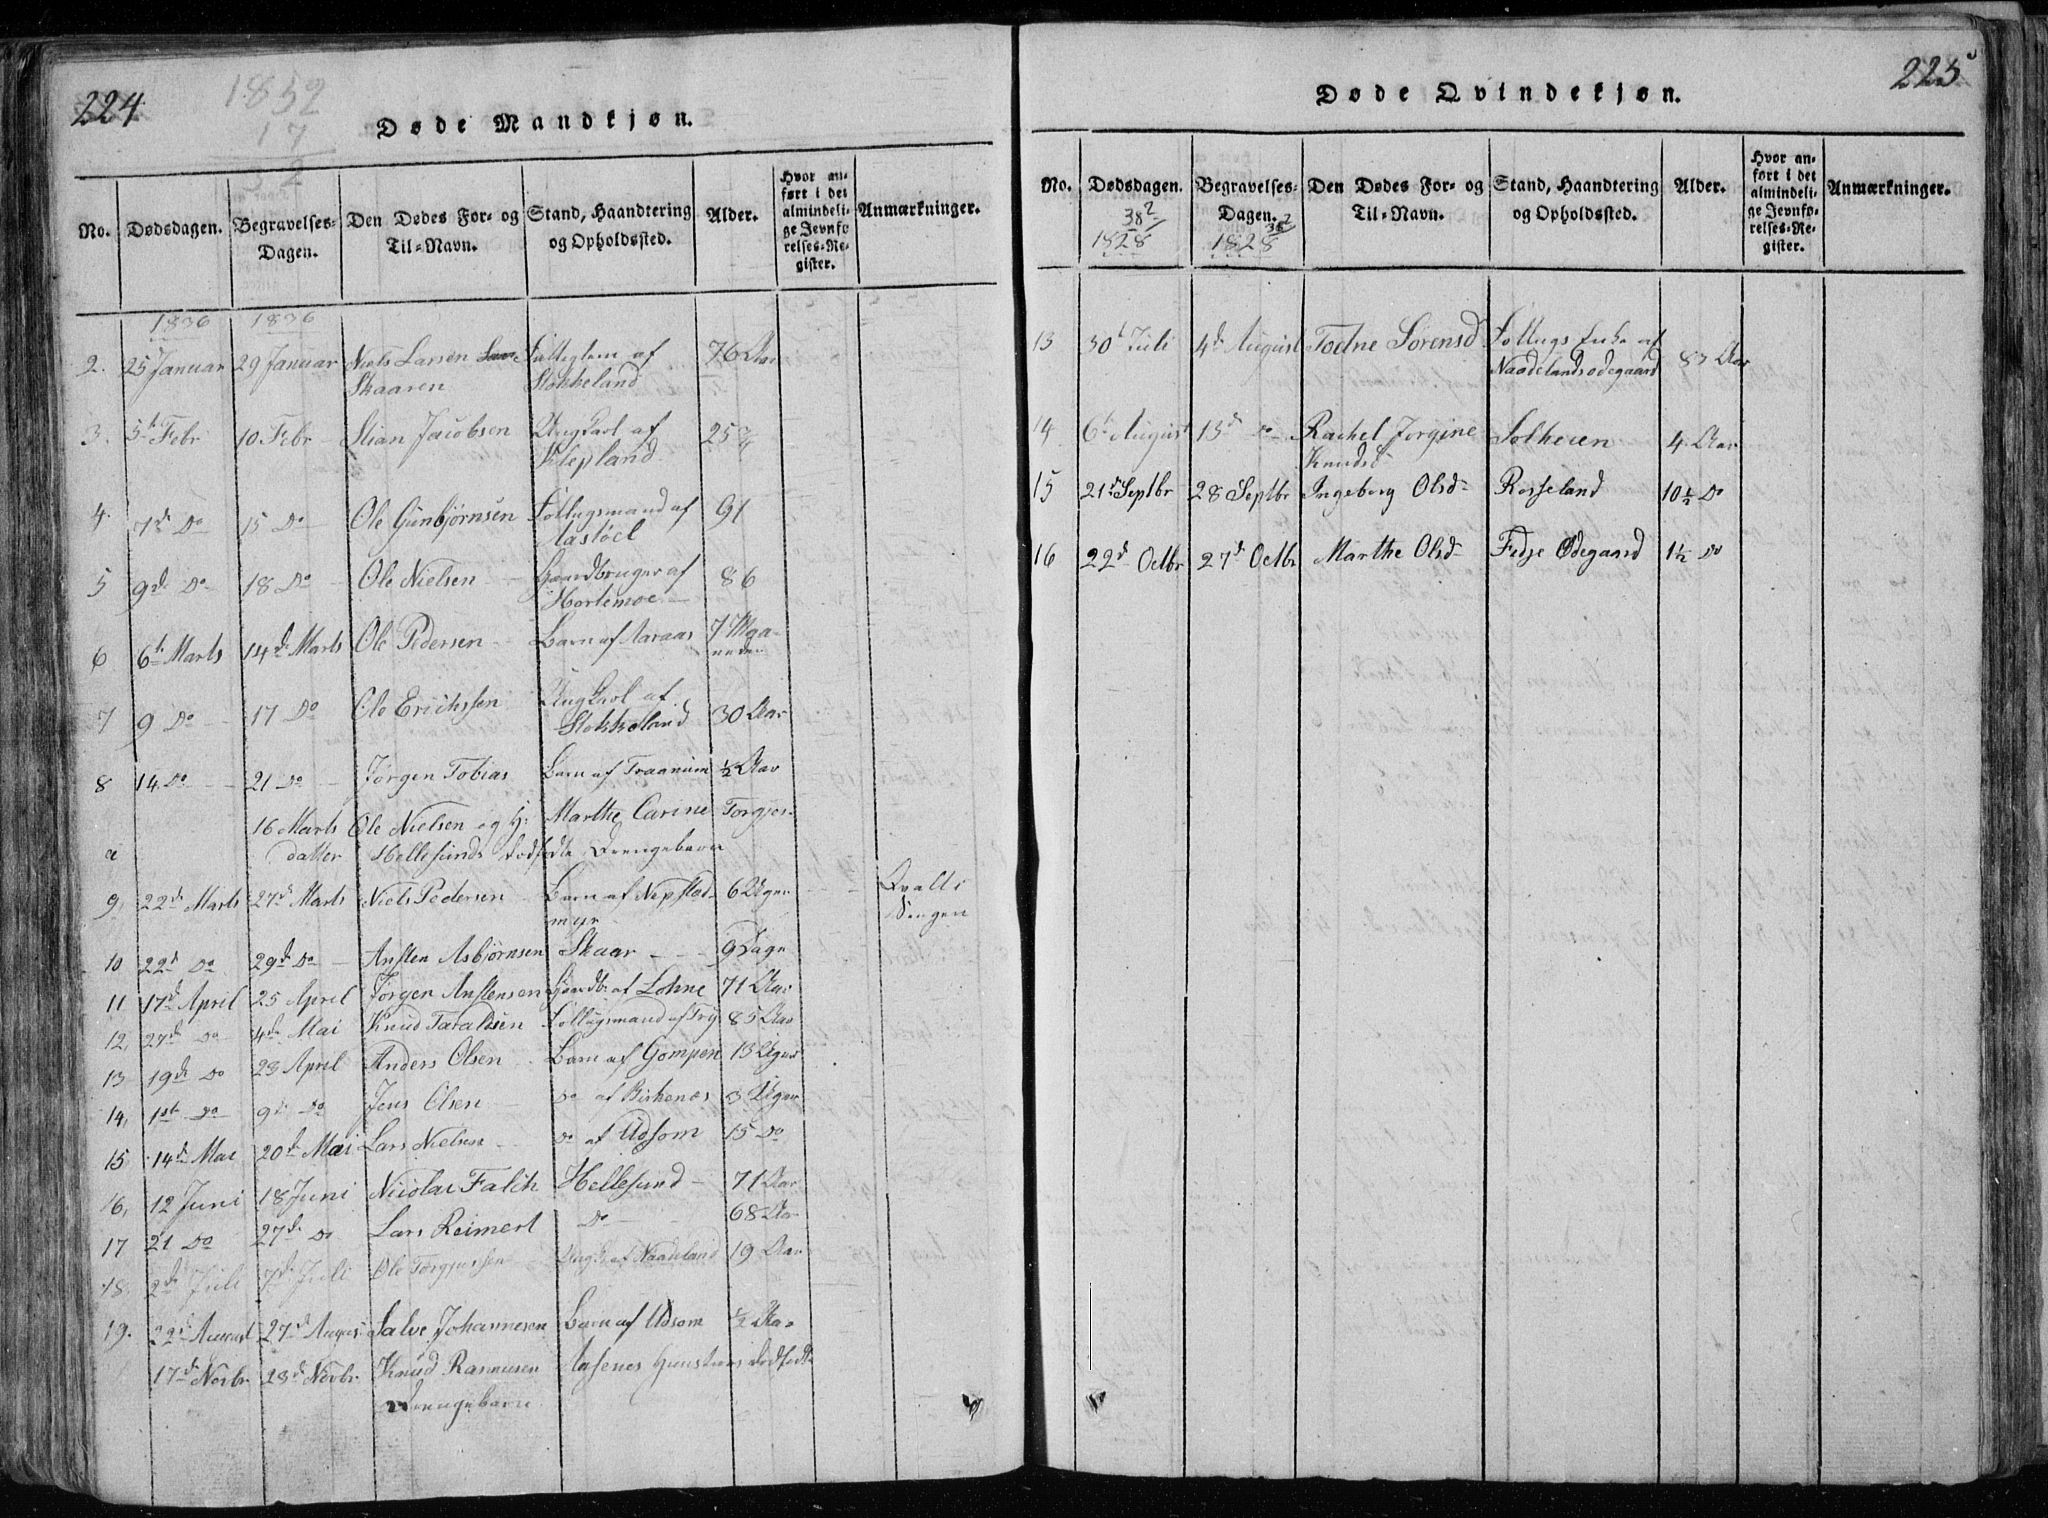 224
1852
17
32
Døde Mandkjøn.
No. Dødsdagen. Begravelses-Dagen. Den Dødes For- og Til-Navn. Stand, Haandtering og Opholdssted. Alder. Hvor anført i det almindelige Jevnførelses-Register. Anmærkninger.
1836 1836
2. 25 Januar 29 Januar Niels Larsen af 76 Aar
Skaaren Stokkeland
3. 5te Febr 10 Febr Stian Jacobsen Ungkarl af 25 3/4
Klepland
4. 7de Do 15 Do Ole Gunbjørnsen Føllugsmand af 91
Aastøel
5 9de Do 18 Do Ole Nielsen Gaardbruger af 86
Hortemoe
6 6te Marts 14de Marts Ole Pedersen Barn af Aaraas 7 Maa-
neder
7 9 Do 17 Do Ole Erichssen Ungkarl af 30 Aar
Stokkeland
8 14 Do 21 Do Jørgen Tobias Barn af Traanum 1/2 Aar
a 16 Marts Ole Nielsen og H: Marthe Carine Torgjes-
datter Hellesunds dødfødte Drengebarn
9, 22de Marts 27de Marts Niels Pedersen Barn af Nepstad- 6 Uger Qvalt i
myr Sengen
10 22de Do 29de Do Ansten Asbjørnsen Skaar 9 Dage
11 17de April 25 April Jørgen Anstensen Gaardbr af Lohne 71 Aar
12, 27de Do 4de Mai Knud Taraldsen Føllugsmand af Try 85 Aar
13 19de Do 23 April Anders Olsen Barn af Gompen 13 Uger
14, 1ste Do 9de Do Jens Olsen Do af Birkenes 3 Uger
15 14de Mai 20de Mai Lars Nielsen Do af Udsom 15 Do
16, 12 Juni 18 Juni Nicolai Falch Hellesund 71 Aar
17 21 Do 27de Do Lars Reimert Do 68 Aar
18. 2de Juli 7de Juli Ole Torgjussen Ungk. af Naadeland 19 Aar
19. 22de August 27de August Salve Johannesen Barn af Udsom 1/2 Aar
17de Novbr 28de Novbr Knud Rasmusen Aasenes Hunstrues dødfødte
Drengebarn
225
Døde Qvindekjøn.
No. Dødsdagen. Begravelses-Dagen. Den Dødes For- og Til-Navn. Stand, Haandtering og Opholdssted. Alder. Hvor anført i det almindelige Jevnførelses-Register. Anmærkninger.
38? 38?
1828 1828
13 30te Juli 4de August Todne Sørensd Føllugs Enke af 83 Aar
Naadelandsødegaard
14 6te August 13de Do Rachel Jørgine Solheien 4 Aar
Knudsd
15 21de Septbr 28 Septbr Ingeborg Olsd Rosseland 10 1/2 Do
16 22de Octbr 27de Octbr Marthe Olsd Fedje Ødegaard 1 1/2 Do